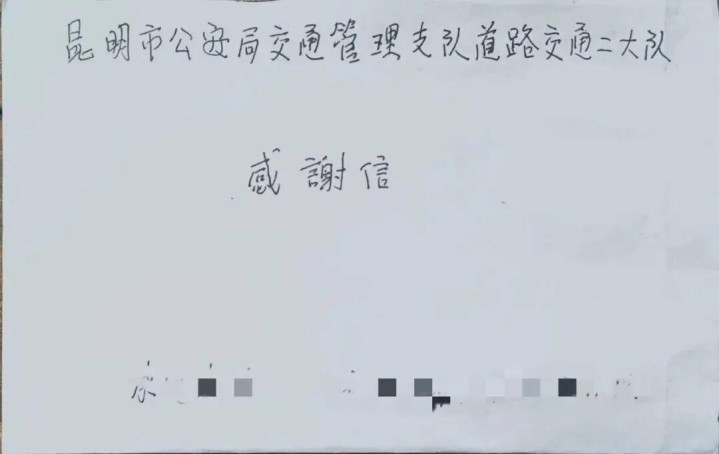 昆明市公安局交通管理支队道路交通二大队
感謝信